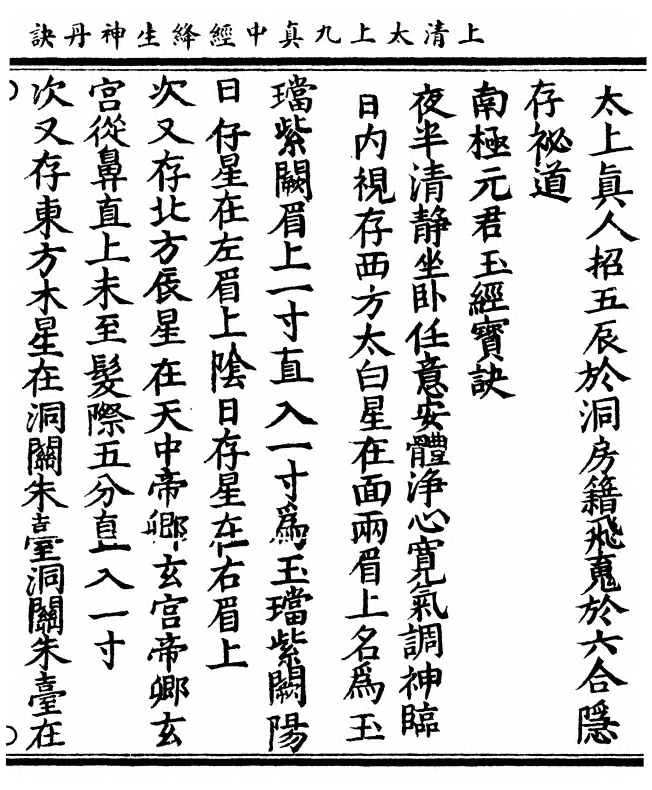 上清太上九真中經絳生神丹訣
太上眞人招五辰於洞房籍飛䰟於六合隱
存祕道
南極元君玉經寳訣
夜半清静坐卧任意安體浄心寛氣調神臨
日内視存西方太白星在面兩眉上名爲玉
璫紫闕眉上一寸直入一寸爲玉璫紫闕陽
日仔星在左眉上陰日存星在右眉上
次又存北方辰星在天中帝卿玄宫帝卿玄
宫從鼻直上未至髮際五分直入一寸
次又存東方木星在洞闗朱臺洞闗朱臺在